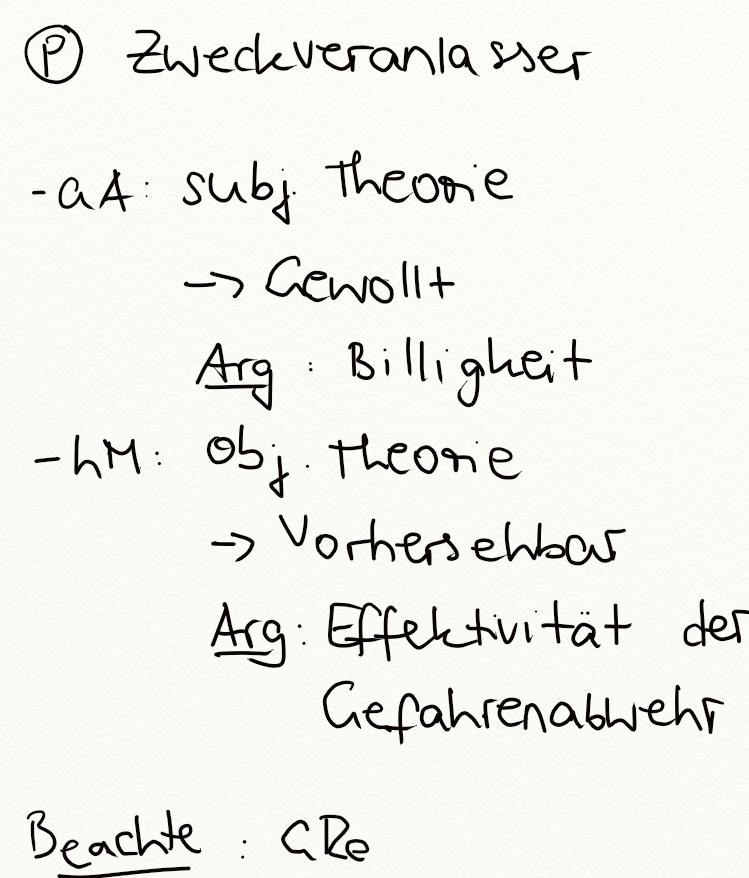 Ⓟ Zweckveranlasser
-aA: subj. Theorie
-> Gewollt
Arg : Billigkeit
-hM: Obj. Theorie
-> Vorhersehbar
Arg: Effektivität der
Gefahrenabwehr
Beachte : GRe